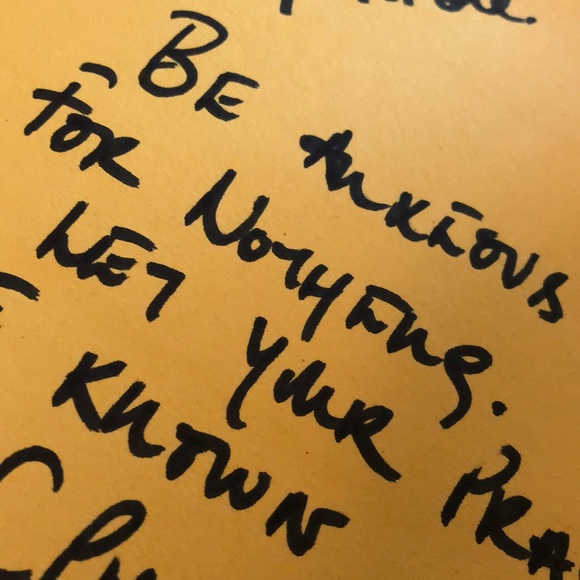 BE ANXIOUS
FOR NOTHING.
LET YOUR PRA
KNOWN